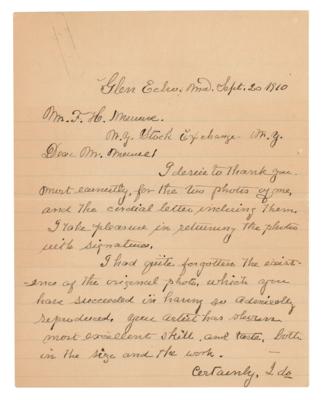 Glen Echo, Md. Sept. 20 1910
Mr. F. H.
N.Y. Stock Exchange N.Y.
Dear Mr.
I desire to thank you
most earnestly, for the two photos of me,
and the cordial letter, inclosing them.
I take pleasure in returning the photos
with signatures.
I had quite forgotten the exist-
ence of the original photo, which you
have succeeded in having so admirably
reproduced. your artist has shown
most excellent skill, and taste, both
in the size and the work.
Certainly, I do